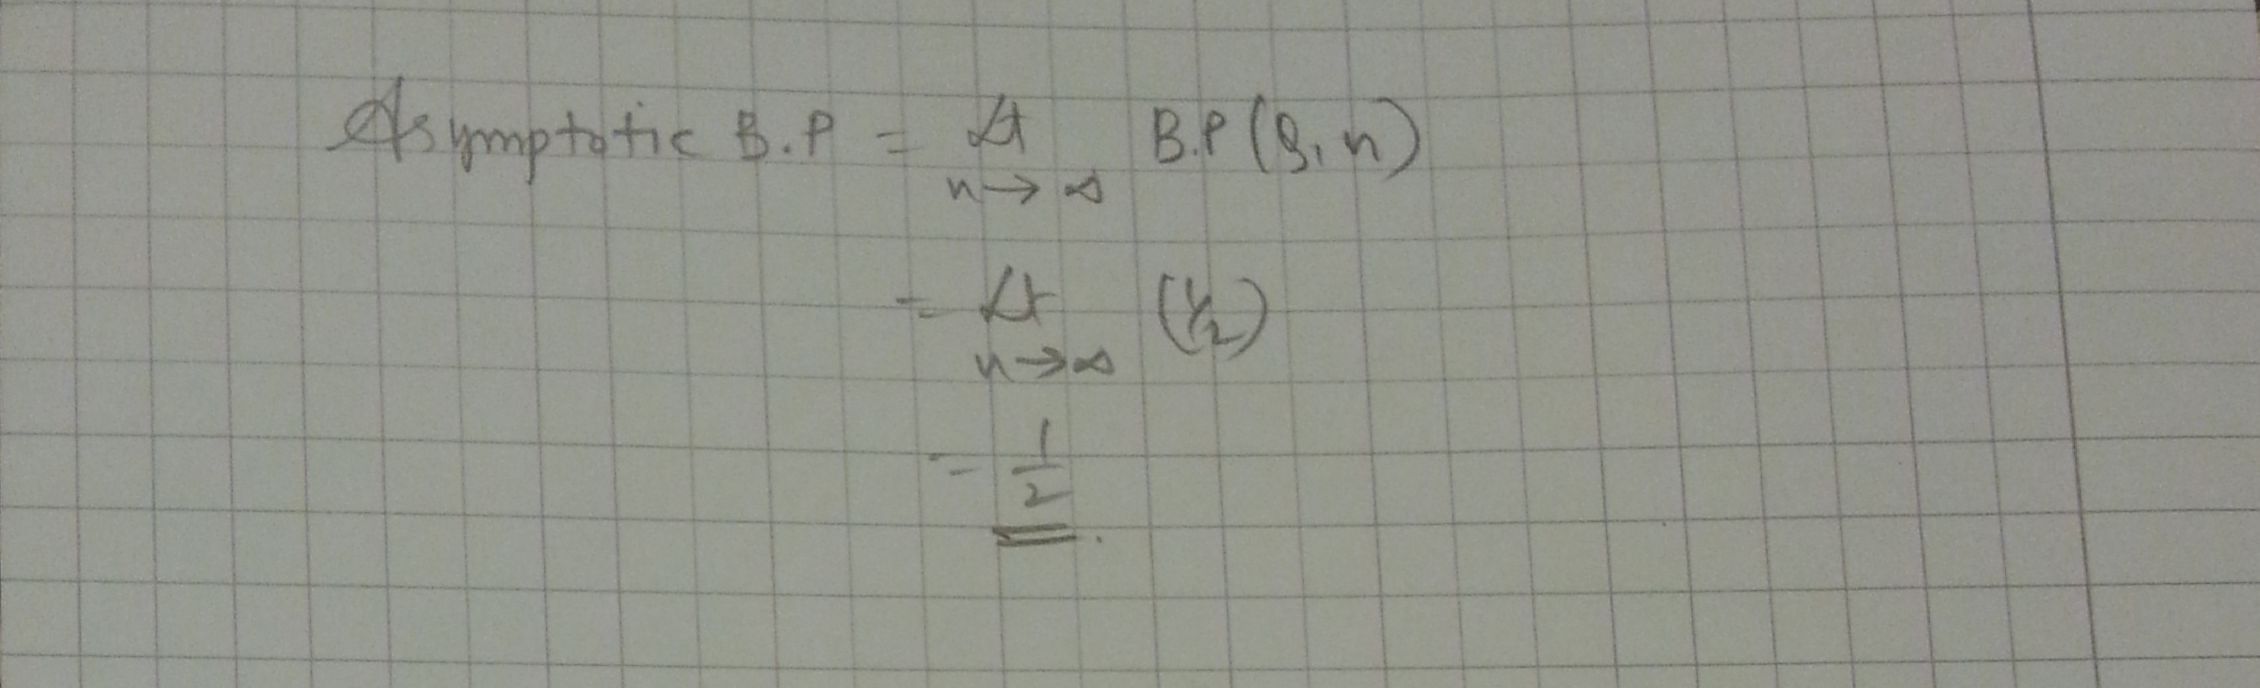 Asymptotic B.P = Lt n→∞ B.P(S, n)
= Lt n→∞ (1/2)
= 1/2.